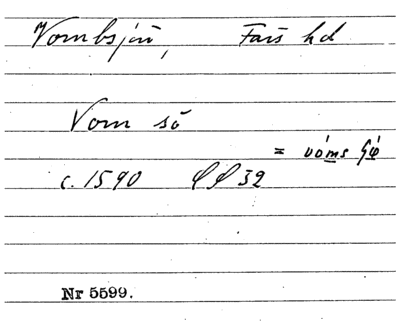 Vombsjön, Färs hd
Vom sö
= vóms ʃö́
c. 1590 PP 32
Nr 5599.